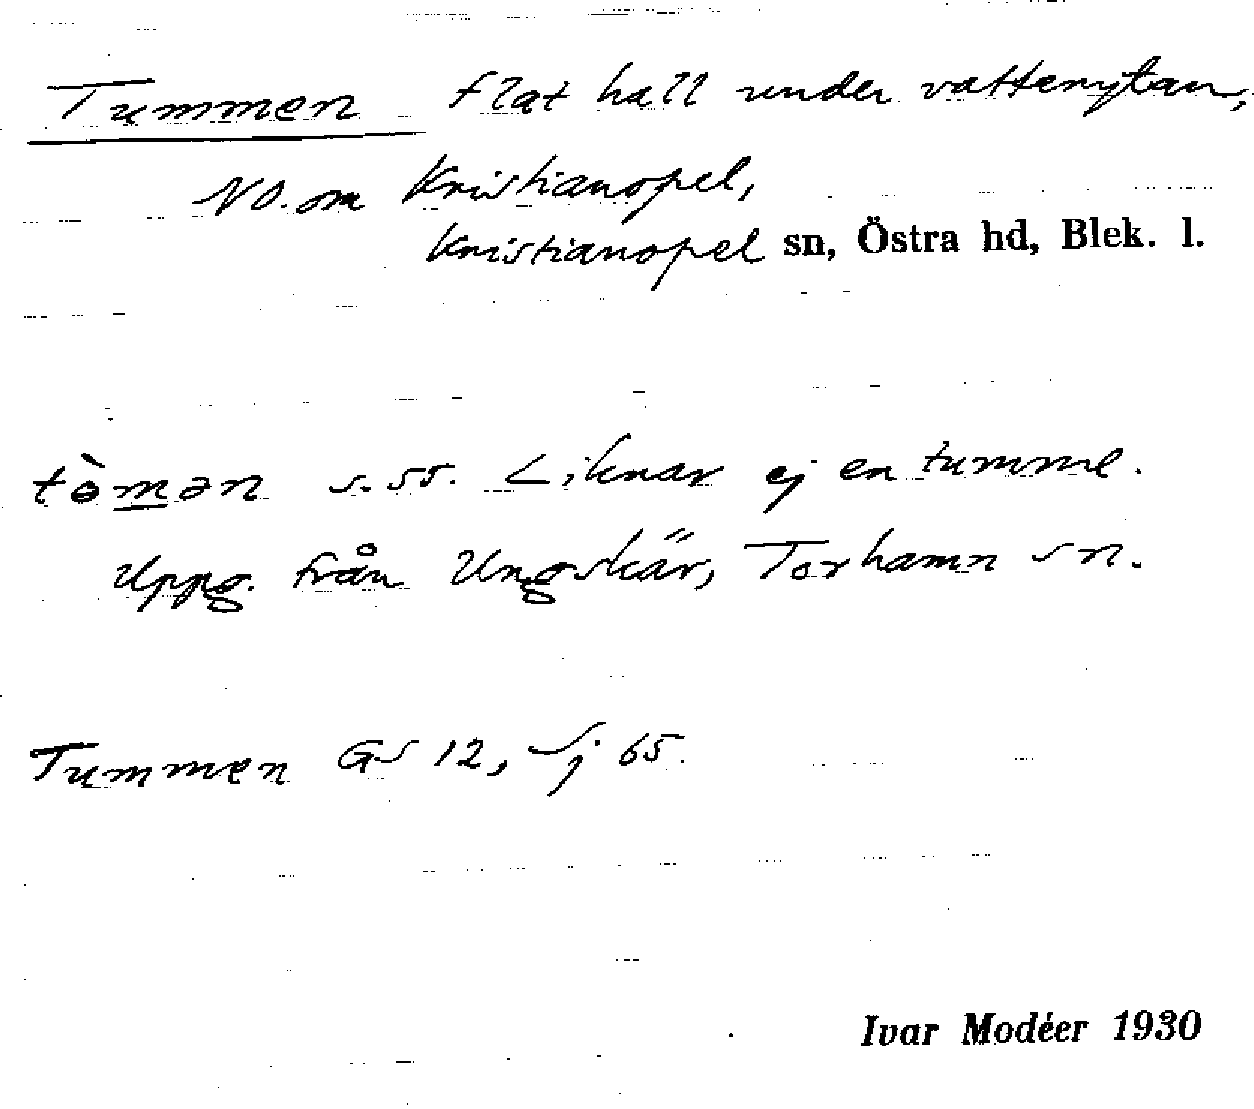 Tummen flat hall under vattenytan,
NO. om Kristianopel,
Kristianopel sn, Östra hd, Blek. l.
tòmən s. 55. Liknar ej en tumme.
Uppg. från Ungskär, Torhamn sn.
Tummen GS 12, Sj 65.
Ivar Modéer 1930